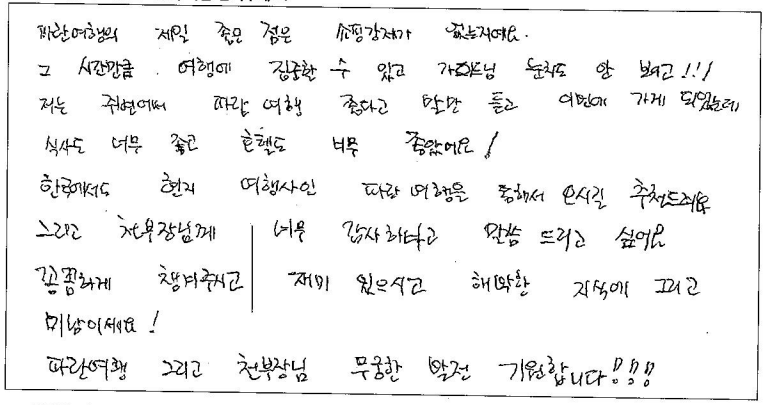 파란여행의 제일 좋은 점은 쇼핑강제가 없는거예요.
그 시간만큼 여행에 집중할 수 있고 가이드님 눈치도 안 보이고!!!
저는 주변에서 파란 여행 좋다고 말만 듣고 이번에 가게 되었는데
식사도 너무 좋고 호텔도 너무 좋았어요!
한국에서도 현지 여행사인 파란 여행을 통해서 오시길 추천드려요
그리고 천부장님께 너무 감사하다고 말씀 드리고 싶어요
꼼꼼하게 챙겨주시고 재미 있으시고 해박한 지식에 그리고
미남이세요!
파란여행 그리고 천부장님 무궁한 발전 기원합니다!!!